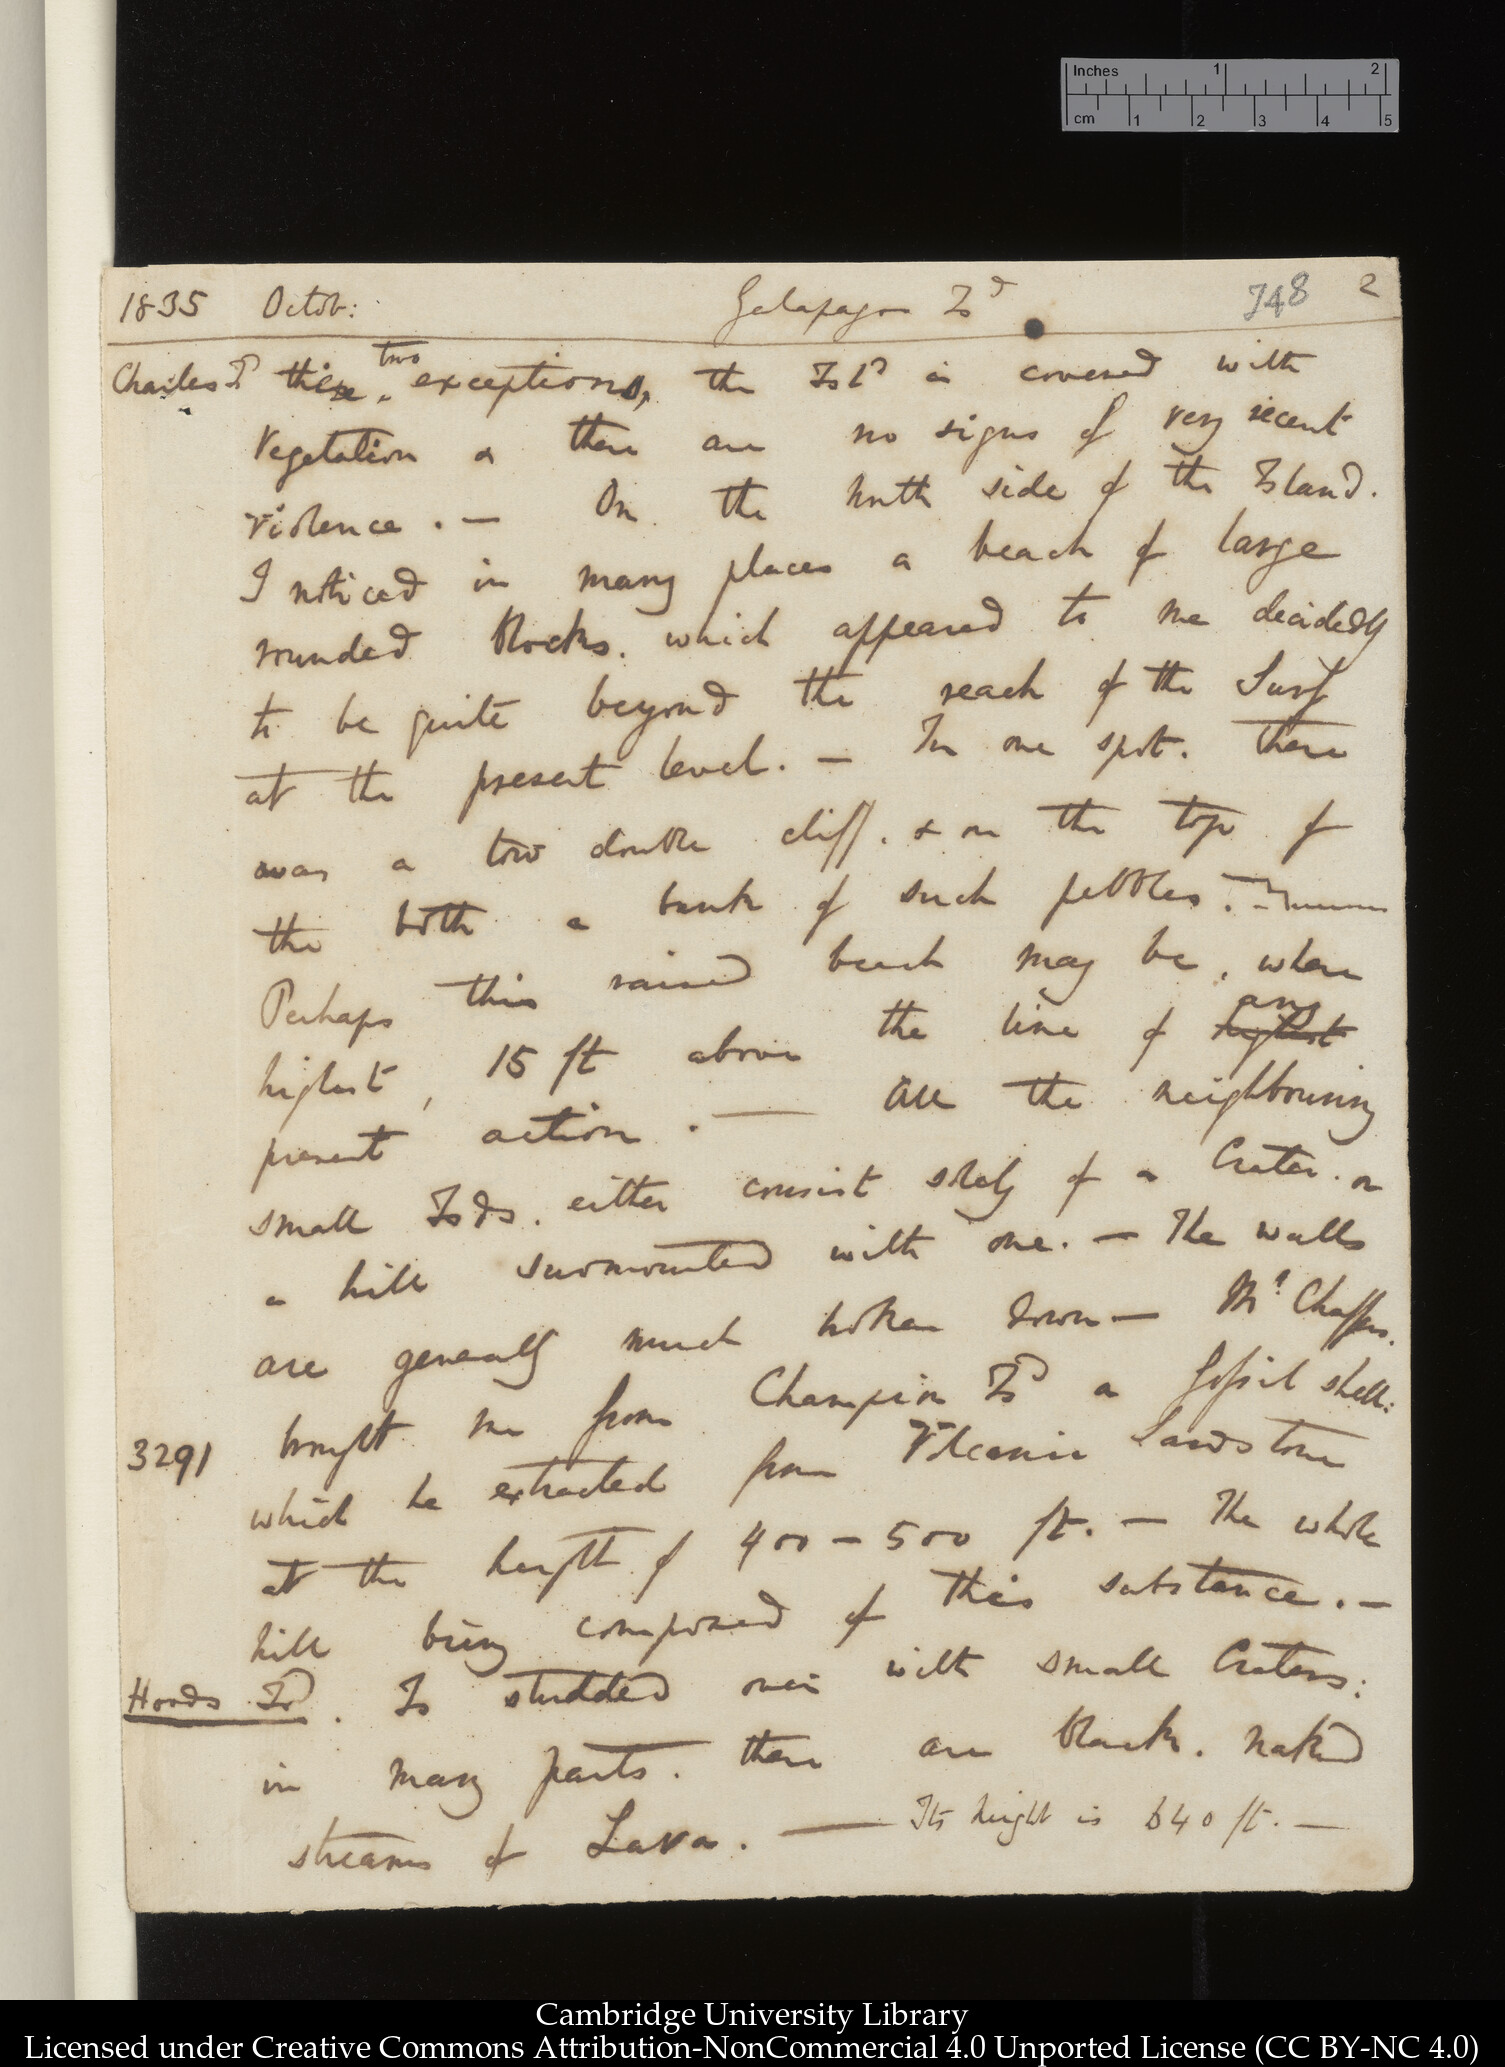 Inches 1 2
cm 1 2 3 4 5
1835 Octob: Galapagos Isd 748 2
Charles Isd these two exceptions, the Isld is covered with
vegetation & there are no signs of very recent
violence. — On the North side of the Island.
I noticed in many places a beach of large
rounded blocks. which appeared to me decidedly
to be quite beyond the reach of the Surf
at the present level. — In one spot. there
was a low double cliff. & on the top of
the both a bank of such pebbles.
Perhaps this raised beach may be, where
any
highest, 15 ft above the line of highest
present action. — All the neighbouring
small Isds. either consist solely of a Crater. or
a hill surmounted with one. — The walls
are generally much broken down — Mr Chaffers.
3291 brought me from Champion Isd a fossil shell:
which he extracted from Volcanic Sandstone
at the heigth of 400 – 500 ft. — The whole
hill being composed of this substance. —
Hoods Isd. Is studded over with small Craters:
in many parts. there are black. naked
streams of Lava. — Its height is 640 ft. —
Cambridge University Library
Licensed under Creative Commons Attribution-NonCommercial 4.0 Unported License (CC BY-NC 4.0)